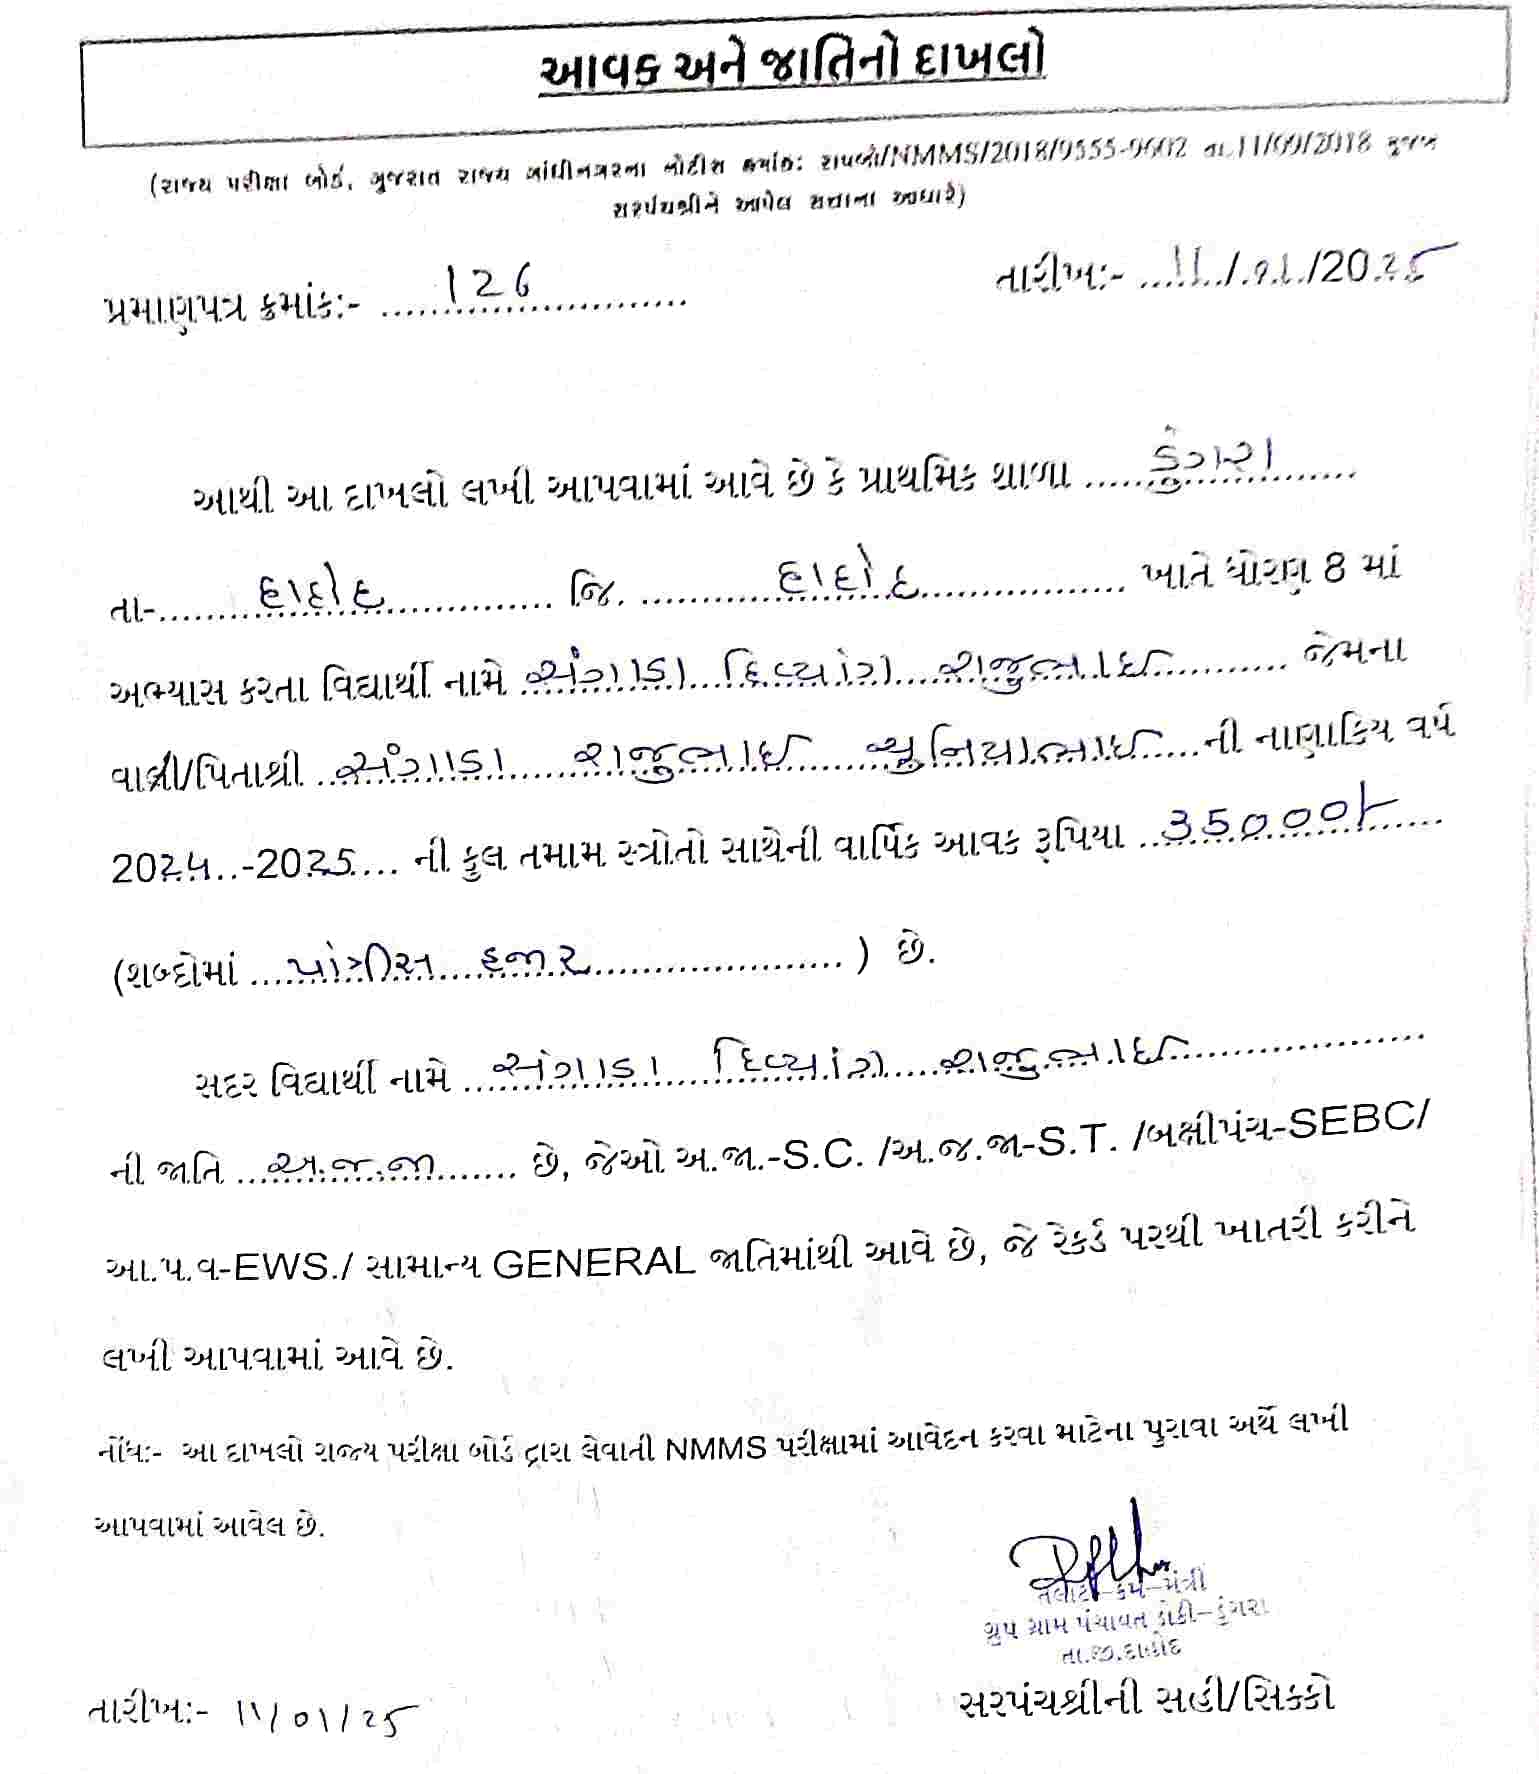 આવક અને જાતિનો દાખલો
(રાજ્ય પરીક્ષા બોર્ડ, ગુજરાત રાજ્ય ગાંધીનગરના નોટીસ ક્રમાંક: રાપબો/NMMS/2018/9555-9602 તા.11/09/2018 મુજબ
સરપંચશ્રીને આપેલ સત્તાના આધારે)
પ્રમાણપત્ર ક્રમાંક:- 126
તારીખ:- 11/01/2025
આથી આ દાખલો લખી આપવામાં આવે છે કે પ્રાથમિક શાળા ડુંગરા
તા- દાહોદ જિ. દાહોદ ખાતે ધોરણ 8 માં
અભ્યાસ કરતા વિદ્યાર્થી નામે સંગાડા દિવ્યાંગ રાજુભાઈ જેમના
વાલી/પિતાશ્રી સંગાડા રાજુભાઈ ચુનિયાભાઈ ની નાણાકિય વર્ષ
2024-2025 ની કુલ તમામ સ્ત્રોતો સાથેની વાર્ષિક આવક રૂપિયા 35000/-
(શબ્દોમાં પાંત્રીસ હજાર) છે.
સદર વિદ્યાર્થી નામે સંગાડા દિવ્યાંગ રાજુભાઈ
ની જાતિ અ.જ.જા છે, જેઓ અ.જા.-S.C. /અ.જ.જા-S.T. /બક્ષીપંચ-SEBC/
આ.પ.વ-EWS./ સામાન્ય GENERAL જાતિમાંથી આવે છે, જે રેકર્ડ પરથી ખાતરી કરીને
લખી આપવામાં આવે છે.
નોંધ:- આ દાખલો રાજ્ય પરીક્ષા બોર્ડ દ્વારા લેવાતી NMMS પરીક્ષામાં આવેદન કરવા માટેના પુરાવા અર્થે લખી
આપવામાં આવેલ છે.
તલાટી-કમ-મંત્રી
ગ્રુપ ગ્રામ પંચાયત ડોકી-ડુંગરા
તા.જી.દાહોદ
તારીખ:- 11/01/25
સરપંચશ્રીની સહી/સિક્કો